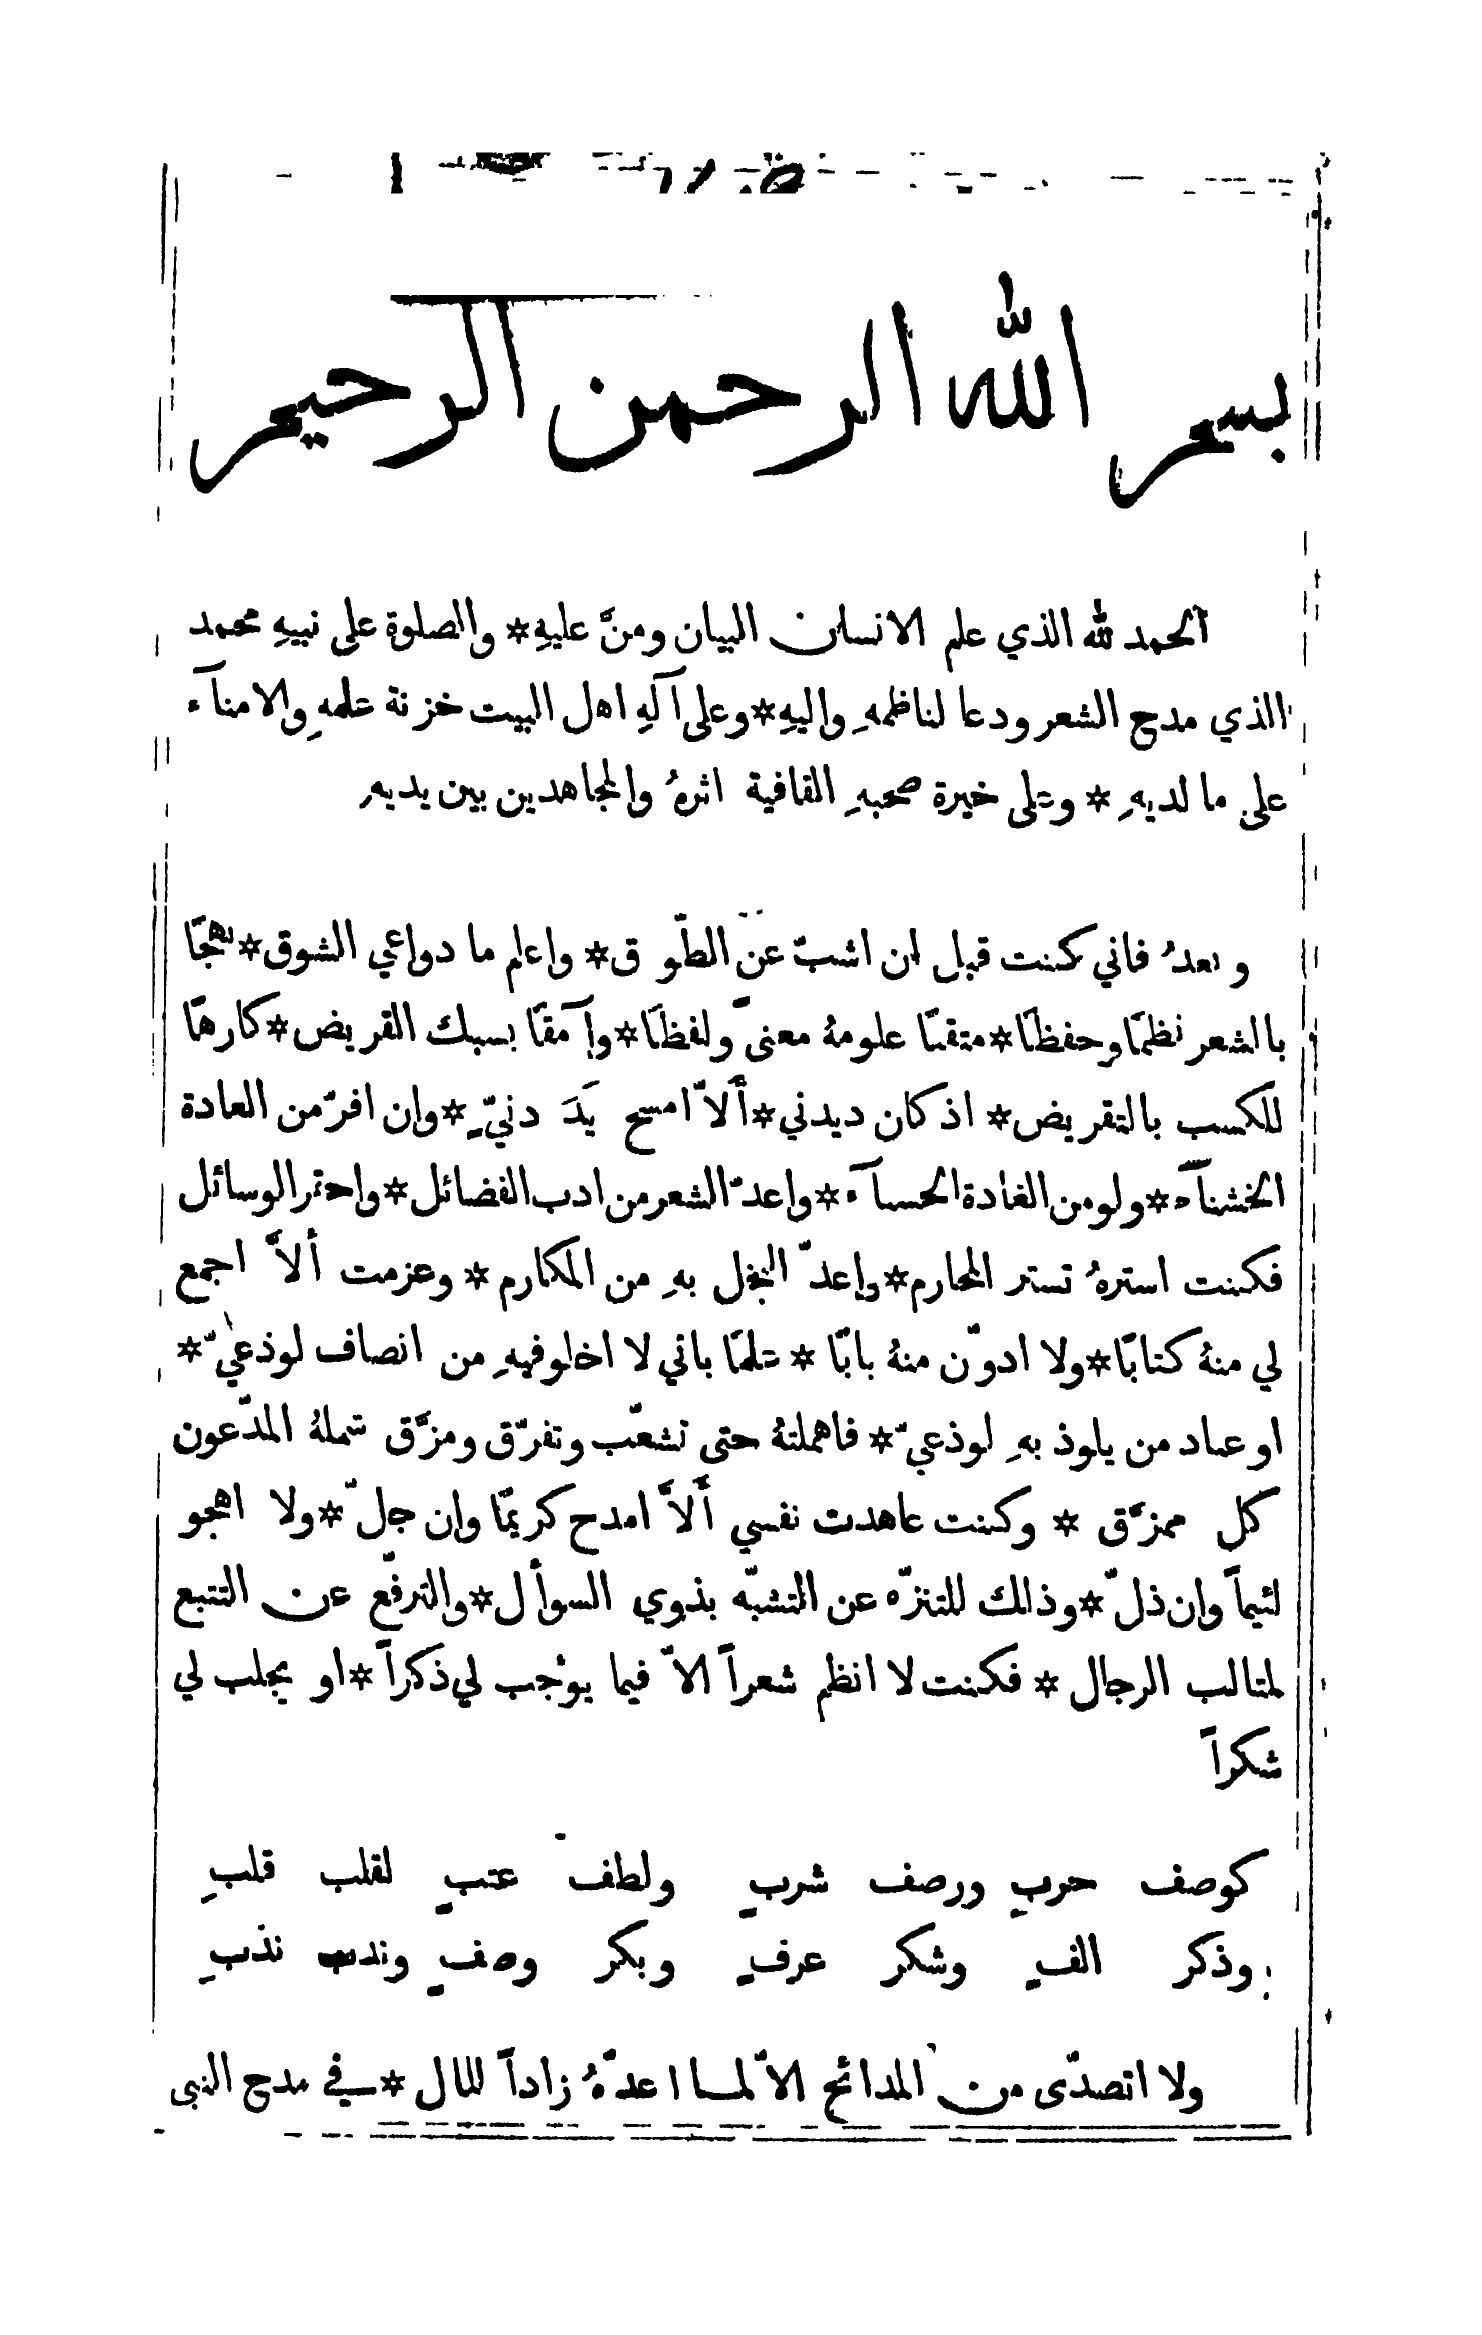 بسم الله الرحمن الرحيم
الحمد لله الذي علم الانسان البيان ومنَّ عليهِ * والصلوة على نبيهِ محمد
الذي مدح الشعر ودعا لناظمهِ واليهِ * وعلى آلهِ اهل البيت خزنة علمهِ والامنآء
على ما لديهِ * وعلى خيرة صحبهِ القافية اثرهُ والمجاهدين بين يديهِ
وبعدُ فاني كنت قبل ان اشبّ عن الطّوق * واعلم ما دواعي الشوق * لهجًا
بالشعر نظمًا وحفظًا * متقنًا علومهُ معنىً ولفظًا * وآمقًا بسبك القريض * كارهًا
للكسب بالتقريض * اذ كان ديدني * أَلاّ امسح يَدَ دنيّ * وان افرّ من العادة
الخشنآء * ولو من الغادة الحسآء * واعدّ الشعر من ادب الفضائل * واحتر الوسائل
فكنت استرهُ تستر المحارم * واعدّ البخل بهِ من المكارم * وعزمت ألاَّ اجمع
لي منهُ كتابًا * ولا ادوّن منهُ بابًا * علمًا باني لا اخلو فيهِ من انصاف لوذعيّ *
او عناد من يلوذ بهِ لوذعيّ * فاهملتهُ حتى تشعّب وتفرّق ومزَّق شملهُ المدّعون
كل ممزَّق * وكنت عاهدت نفسي أَلاَّ امدح كريمًا وان جلّ * ولا اهجو
لئيماً وان ذلّ * وذلك للتنزّه عن التشبّه بذوي السوأل * والترفّع عن التتبع
لمثالب الرجال * فكنت لا انظم شعراً الاّ فيما يوْجب لي ذكراً * او يجلب لي
شكراً
كوصف حربٍ ورصف شربٍ ولطف عتبٍ لقلب قلبِ
وذكر الفٍ وشكر عرفٍ وبكر وصفٍ وندب ندبِ
ولا اتصدّى من المدائح الاّ لما اعدّهُ زاداً للمال * في مدح النبي